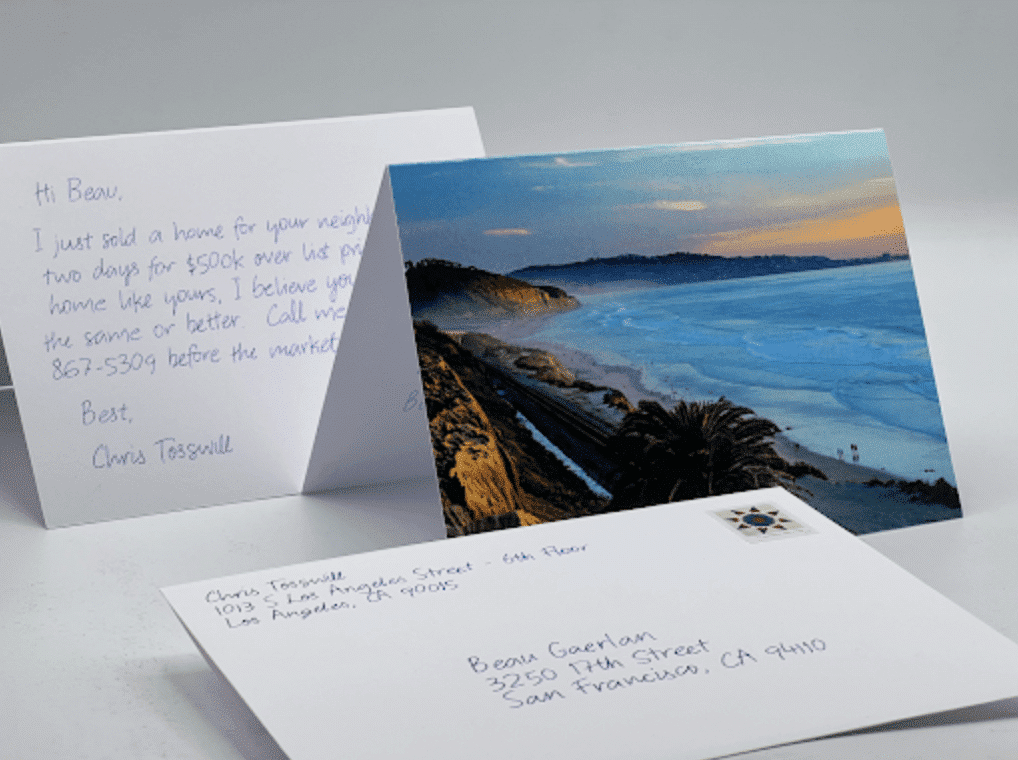 Hi Beau,
I just sold a home for your
two days for $500k over list
home like yours, I believe
the same or better. Call me
867-5309 before the market
Best,
Chris Tosswill
Chris Tosswill
1013 S Los Angeles Street - 6th Floor
Los Angeles, CA 90015
Beau Gaerlan
3250 17th Street
San Francisco, CA 94110